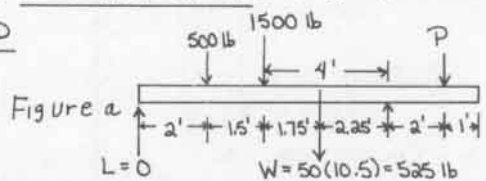 1500 lb
500 lb
P
4'
Figure a
2' 1.5' 1.75' 2.25' 2' 1'
L = 0
W = 50(10.5) = 525 lb